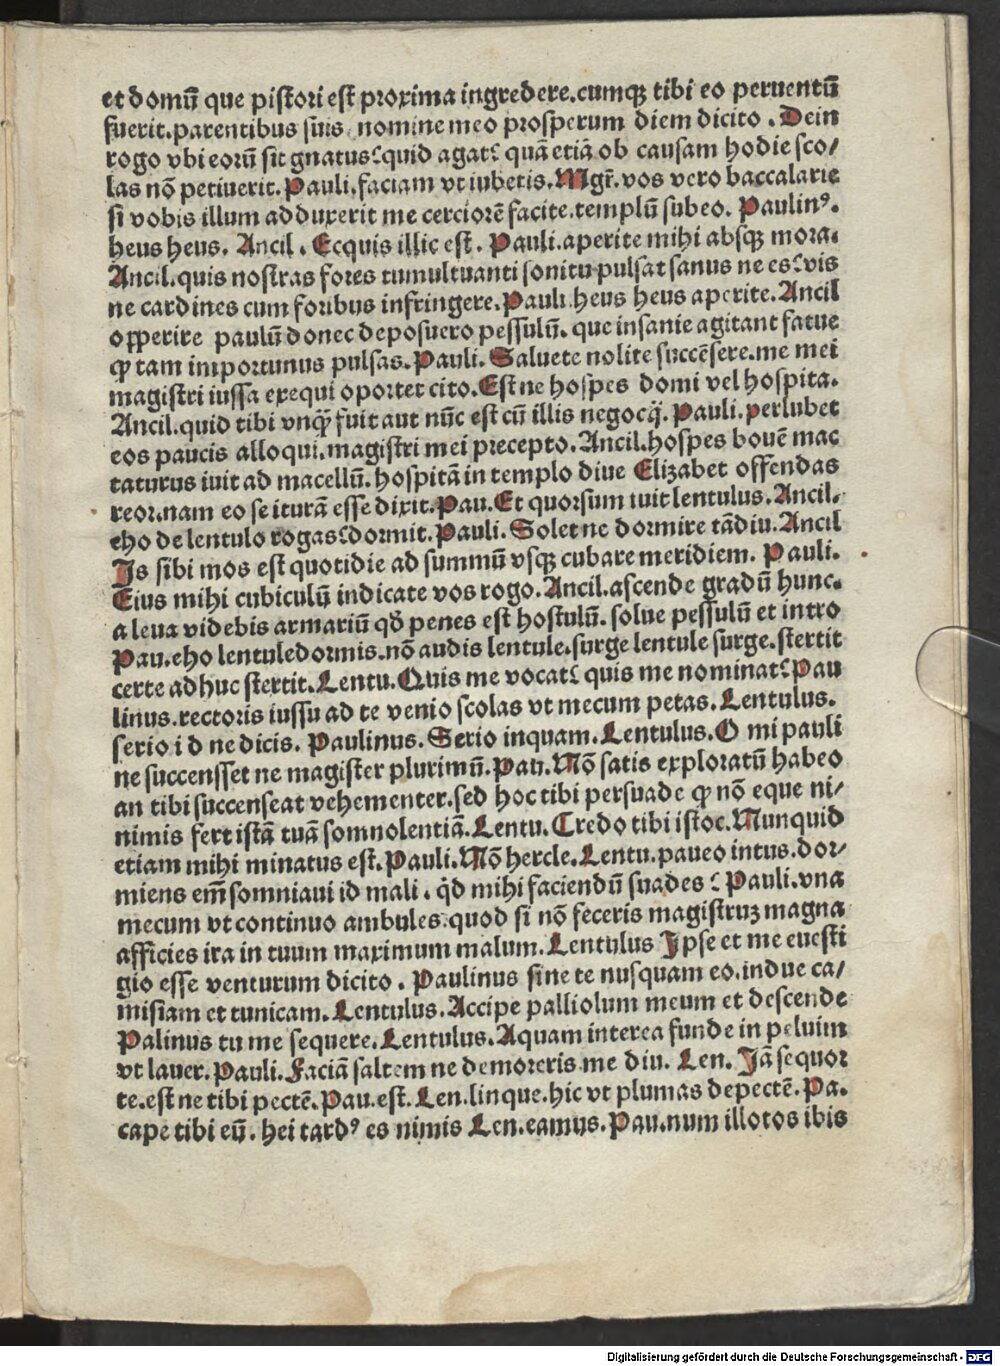 et domū que pistori est proxima ingredere.cumqȝ tibi eo peruentū
fuerit.parentibus suis nomine meo prosperum diem dicito . Dein
rogo vbi eorū sit gnatus?quid agat? quā etiā ob causam hodie sco/
las nō petiuerit. Pauli.faciam vt iubetis.Mgr̄.vos vero baccalarie
si vobis illum adduxerit me cerciorē facite.templū subeo. Paulinꝰ.
heus heus. Ancil . Ecquis illic est . Pauli.aperite mihi absqȝ mora.
Ancil.quis nostras fores tumultuanti sonitu pulsat sanus ne es?vis
ne cardines cum foribus infringere.Pauli.heus heus aperite.Ancil
opperire paulū donec deposuero pessulū. que insanie agitant fatue
ꝙ tam importunus pulsas. Pauli. Saluete nolite succēsere.me mei
magistri iussa exequi oportet cito.Est ne hospes domi vel hospita.
Ancil.quid tibi vnqꝫ̄ fuit aut nūc est cū illis negocij. Pauli. perlubet
eos paucis alloqui.magistri mei precepto. Ancil.hospes bouē mac
taturus iuit ad macellū.hospitā in templo diue Elizabet offendas
reor.nam eo se iturā esse dixit.Pau.Et quorsum iuit lentulus.Ancil.
eho de lentulo rogas?dormit.Pauli. Solet ne dormire tādiu.Ancil
Is sibi mos est quotidie ad summū vsqȝ cubare meridiem. Pauli.
Eius mihi cubiculū indicate vos rogo. Ancil.ascende gradū hunc.
a leua videbis armariū qd̄ penes est hostulū. solue pessulū et intro
Pau.eho lentule dormis.nō audis lentule.surge lentule surge.stertit
certe adhuc stertit.Lentu.Quis me vocat? quis me nominat?Pau
linus.rectoris iussu ad te venio scolas vt mecum petas. Lentulus.
serio i d ne dicis. Paulinus. Serio inquam.Lentulus.O mi pauli
ne succensset ne magister plurimū.Pau.Nō satis exploratū habeo
an tibi succenseat vehementer.sed hoc tibi persuade ꝙ nō eque ni/
nimis fert istā tuā somnolentiā.Lentu.Credo tibi istoc.Nunquid
etiam mihi minatus est.Pauli.Nō hercle.Lentu.paueo intus.dor/
miens em̄ somniaui id mali . qd̓ mihi faciendū suades ? Pauli.vna
mecum vt continuo ambules.quod si nō feceris magistruȝ magna
afficies ira in tuum maximum malum.Lentulus Ipse et me euesti
gio esse venturum dicito . Paulinus sine te nusquam eo.indue ca/
misiam et tunicam.Lentulus.Accipe palliolum meum et descende
Palinus tu me sequere.Lentulus.Aquam interea funde in peluim
vt lauer.Pauli.Faciā saltem ne demoreris me diu. Len. Jā sequor
te.est ne tibi pectē.Pau.est.Len.linque.hic vt plumas depectē.Pa.
cape tibi eū. hei tardꝰ es nimis Len.eamus.Pau.num illotos ibis
Digitalisierung gefördert durch die Deutsche Forschungsgemeinschaft - DFG